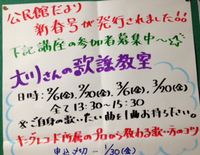 公民館だより
新春号が発行されました!!
下記講座の参加者募集中〜
大川さんの歌謡教室
日時:2/6(金), 2/20(金), 3/6(金), 3/20(金)
全て13:30〜15:30
※ご自身の歌いたい曲を1曲お持ち下さい。
キングレコード所属のプロから教わる歌い方のコツ
申込〆切 - 1/30(金)